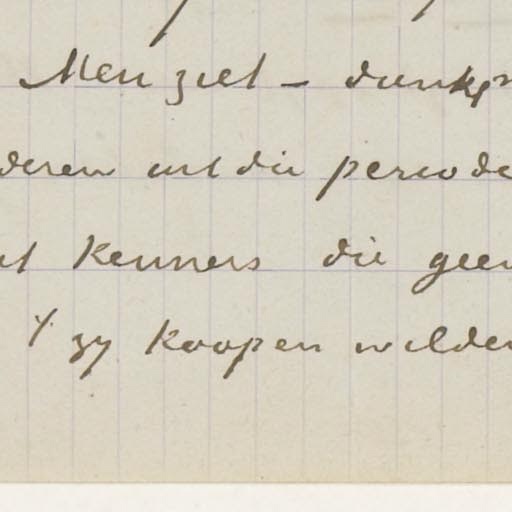 Men ziet – dunkt
deren uit die periode
at kenners die geen
zy koopen wilden